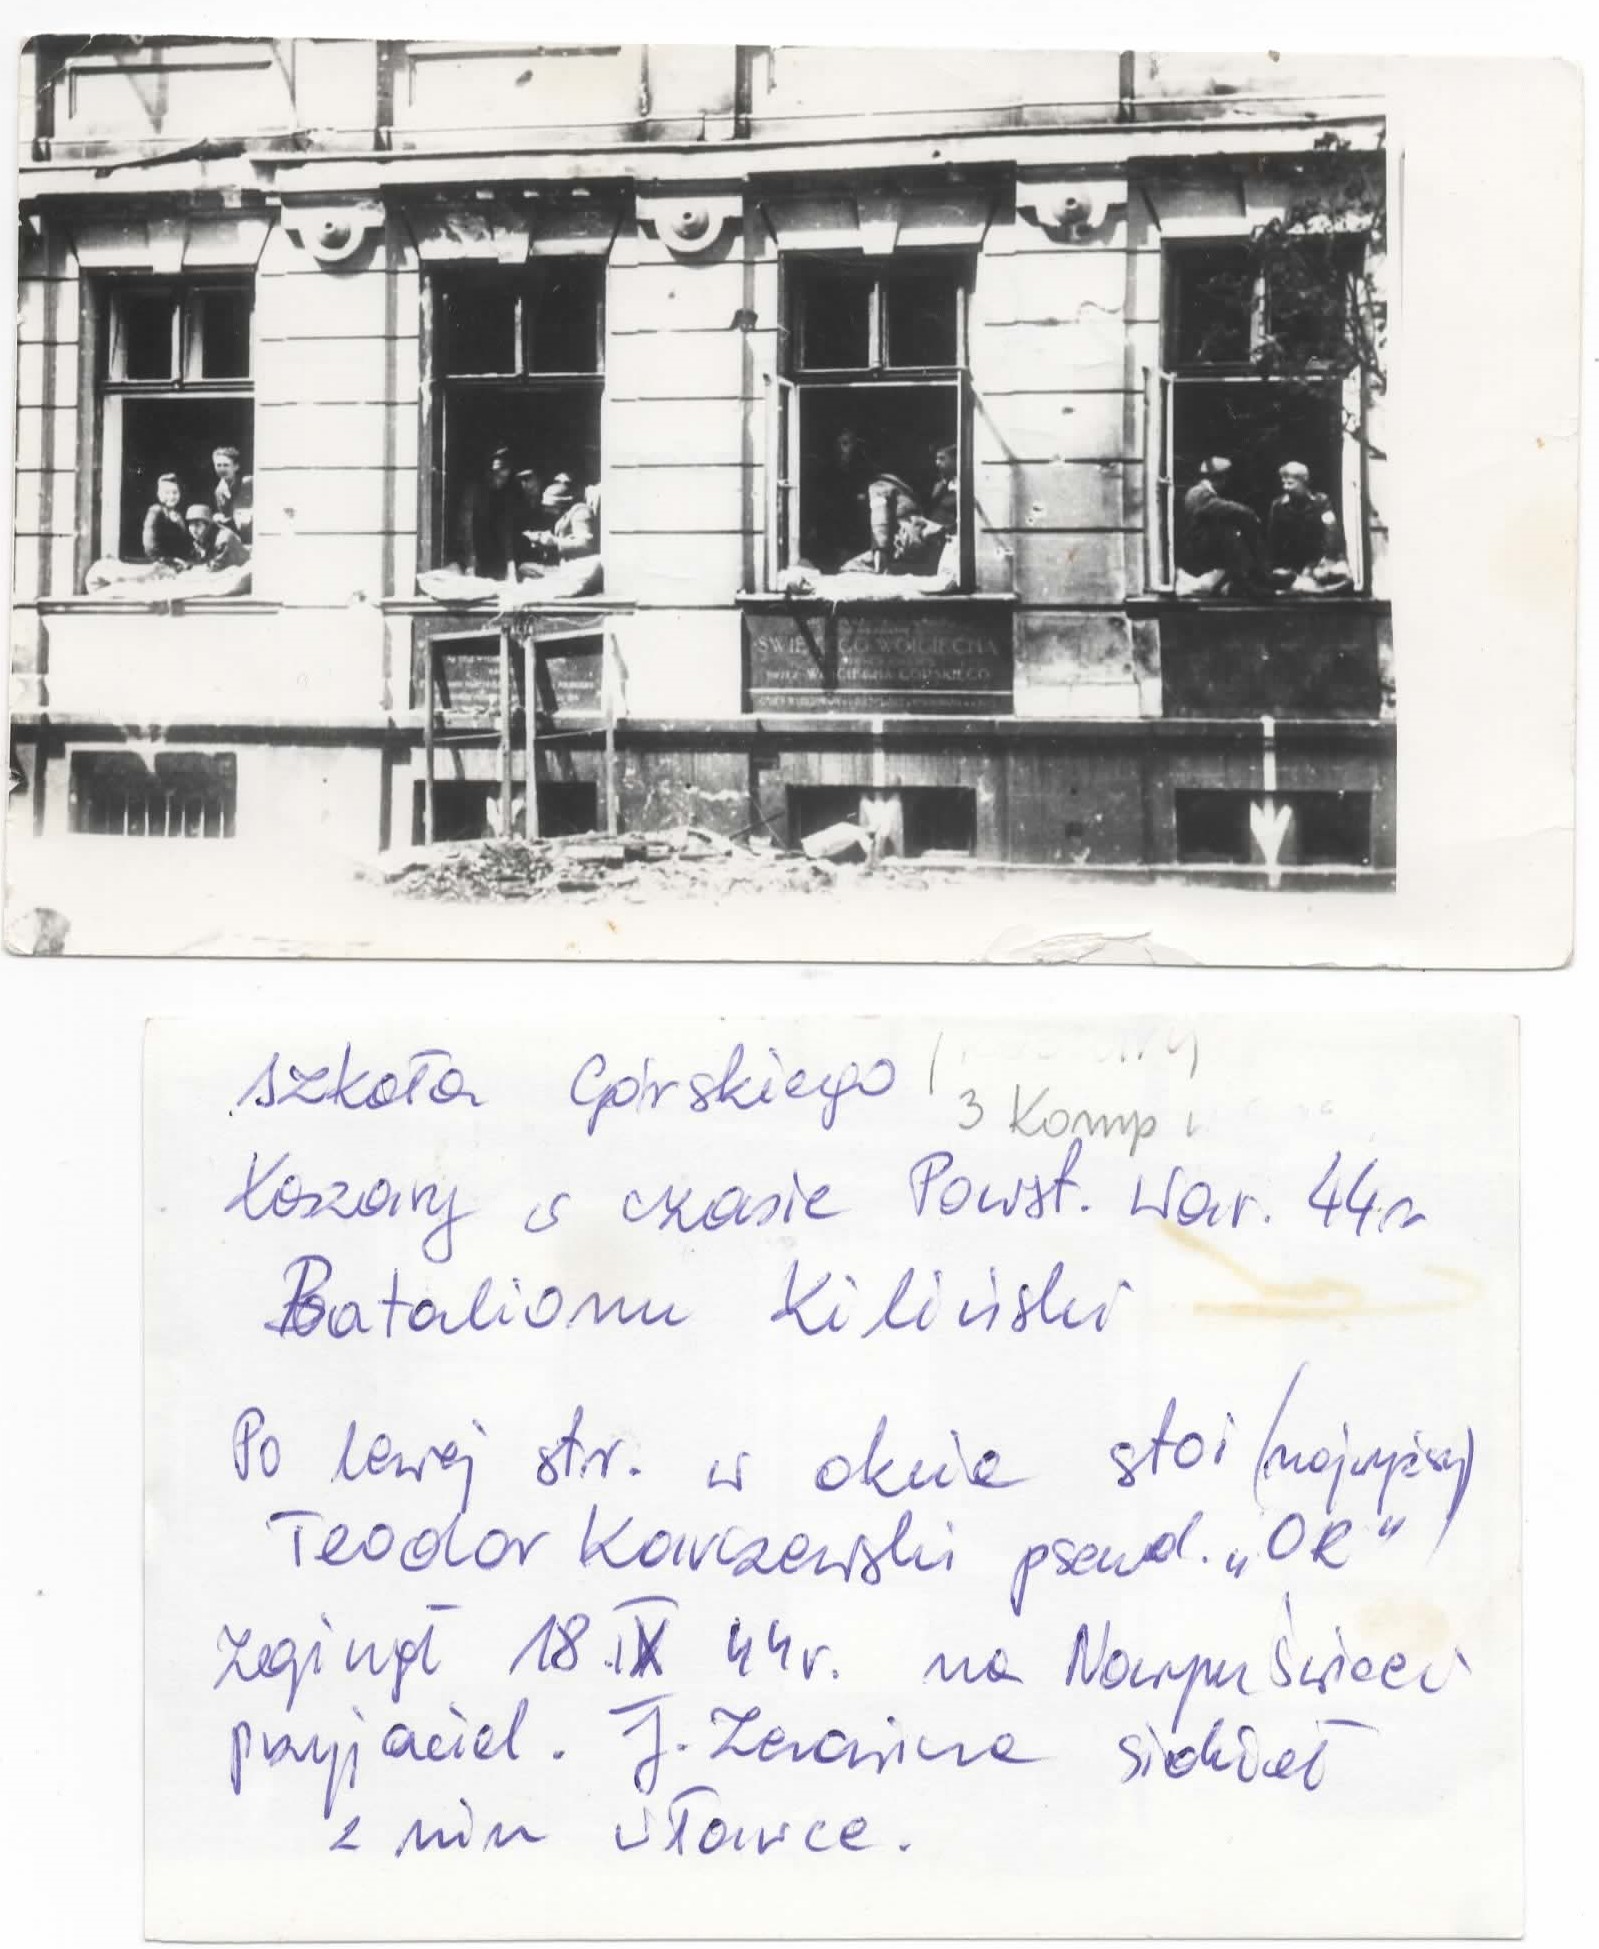 ŚWIĘTEGO WOJCIECHA
WOJCIECHA GÓRSKIEGO
szkoła Górskiego /
3 Komp
Koszary w czasie Powst. War. 44r
Batalionu Kiliński
Po lewej str. w oknie stoi (najwyższy)
Teodor Karczewski pseud. „OR"
Zginął 18 IX 44r. na Nowym Świecie
przyjaciel. J. siedział
z nim w ławce.